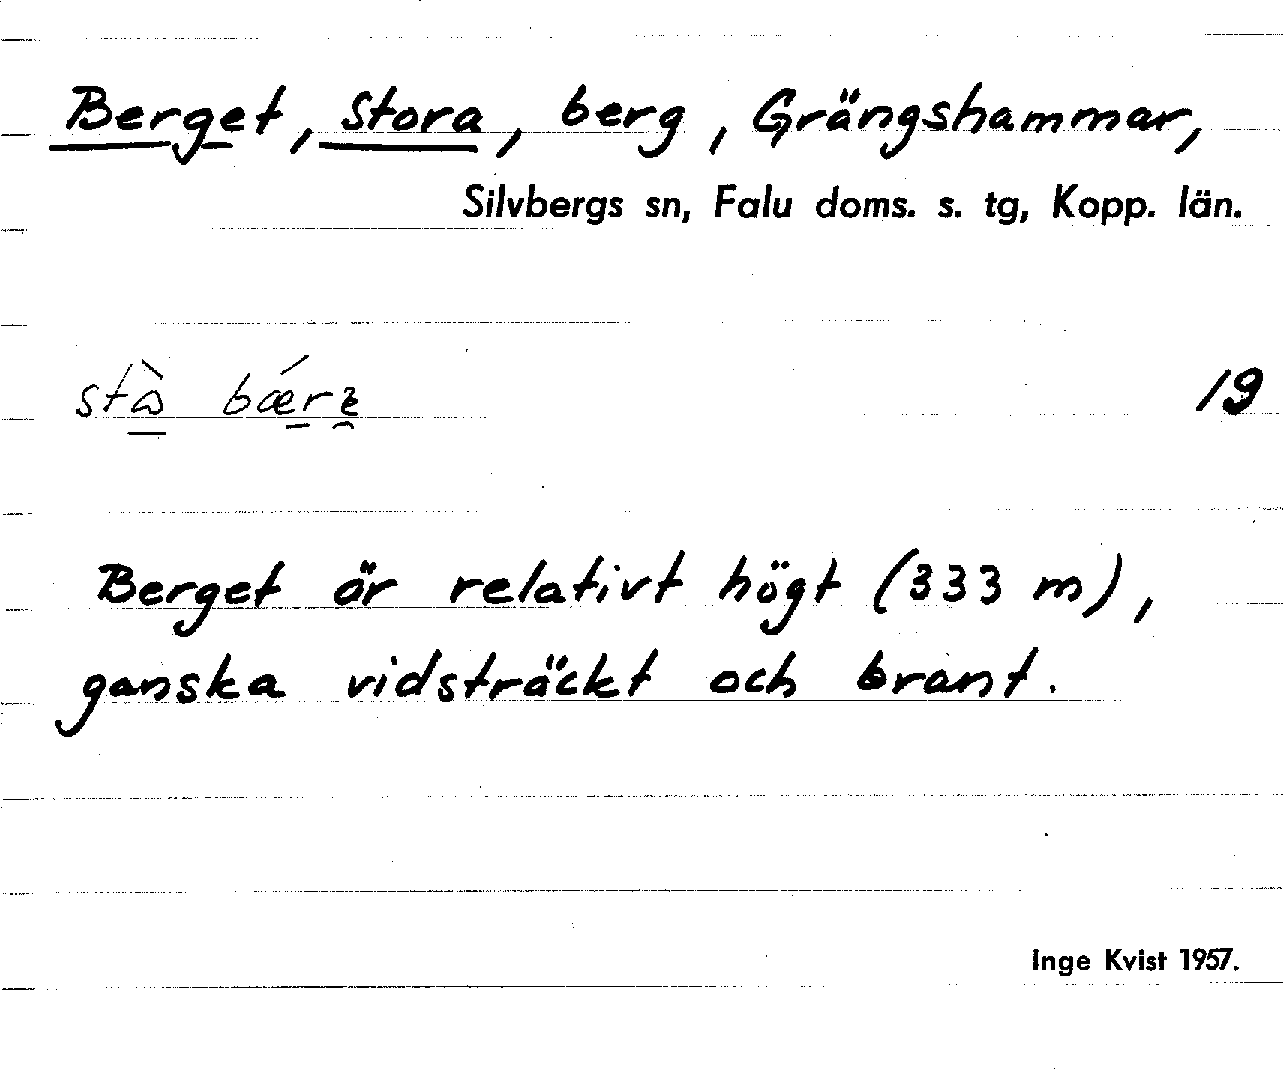 Berget, Stora, berg, Grängshammar,
Silvbergs sn, Falu doms. s. tg, Kopp. län.
19
Berget är relativt högt (333 m),
ganska vidsträckt och brant.
Inge Kvist 1957.